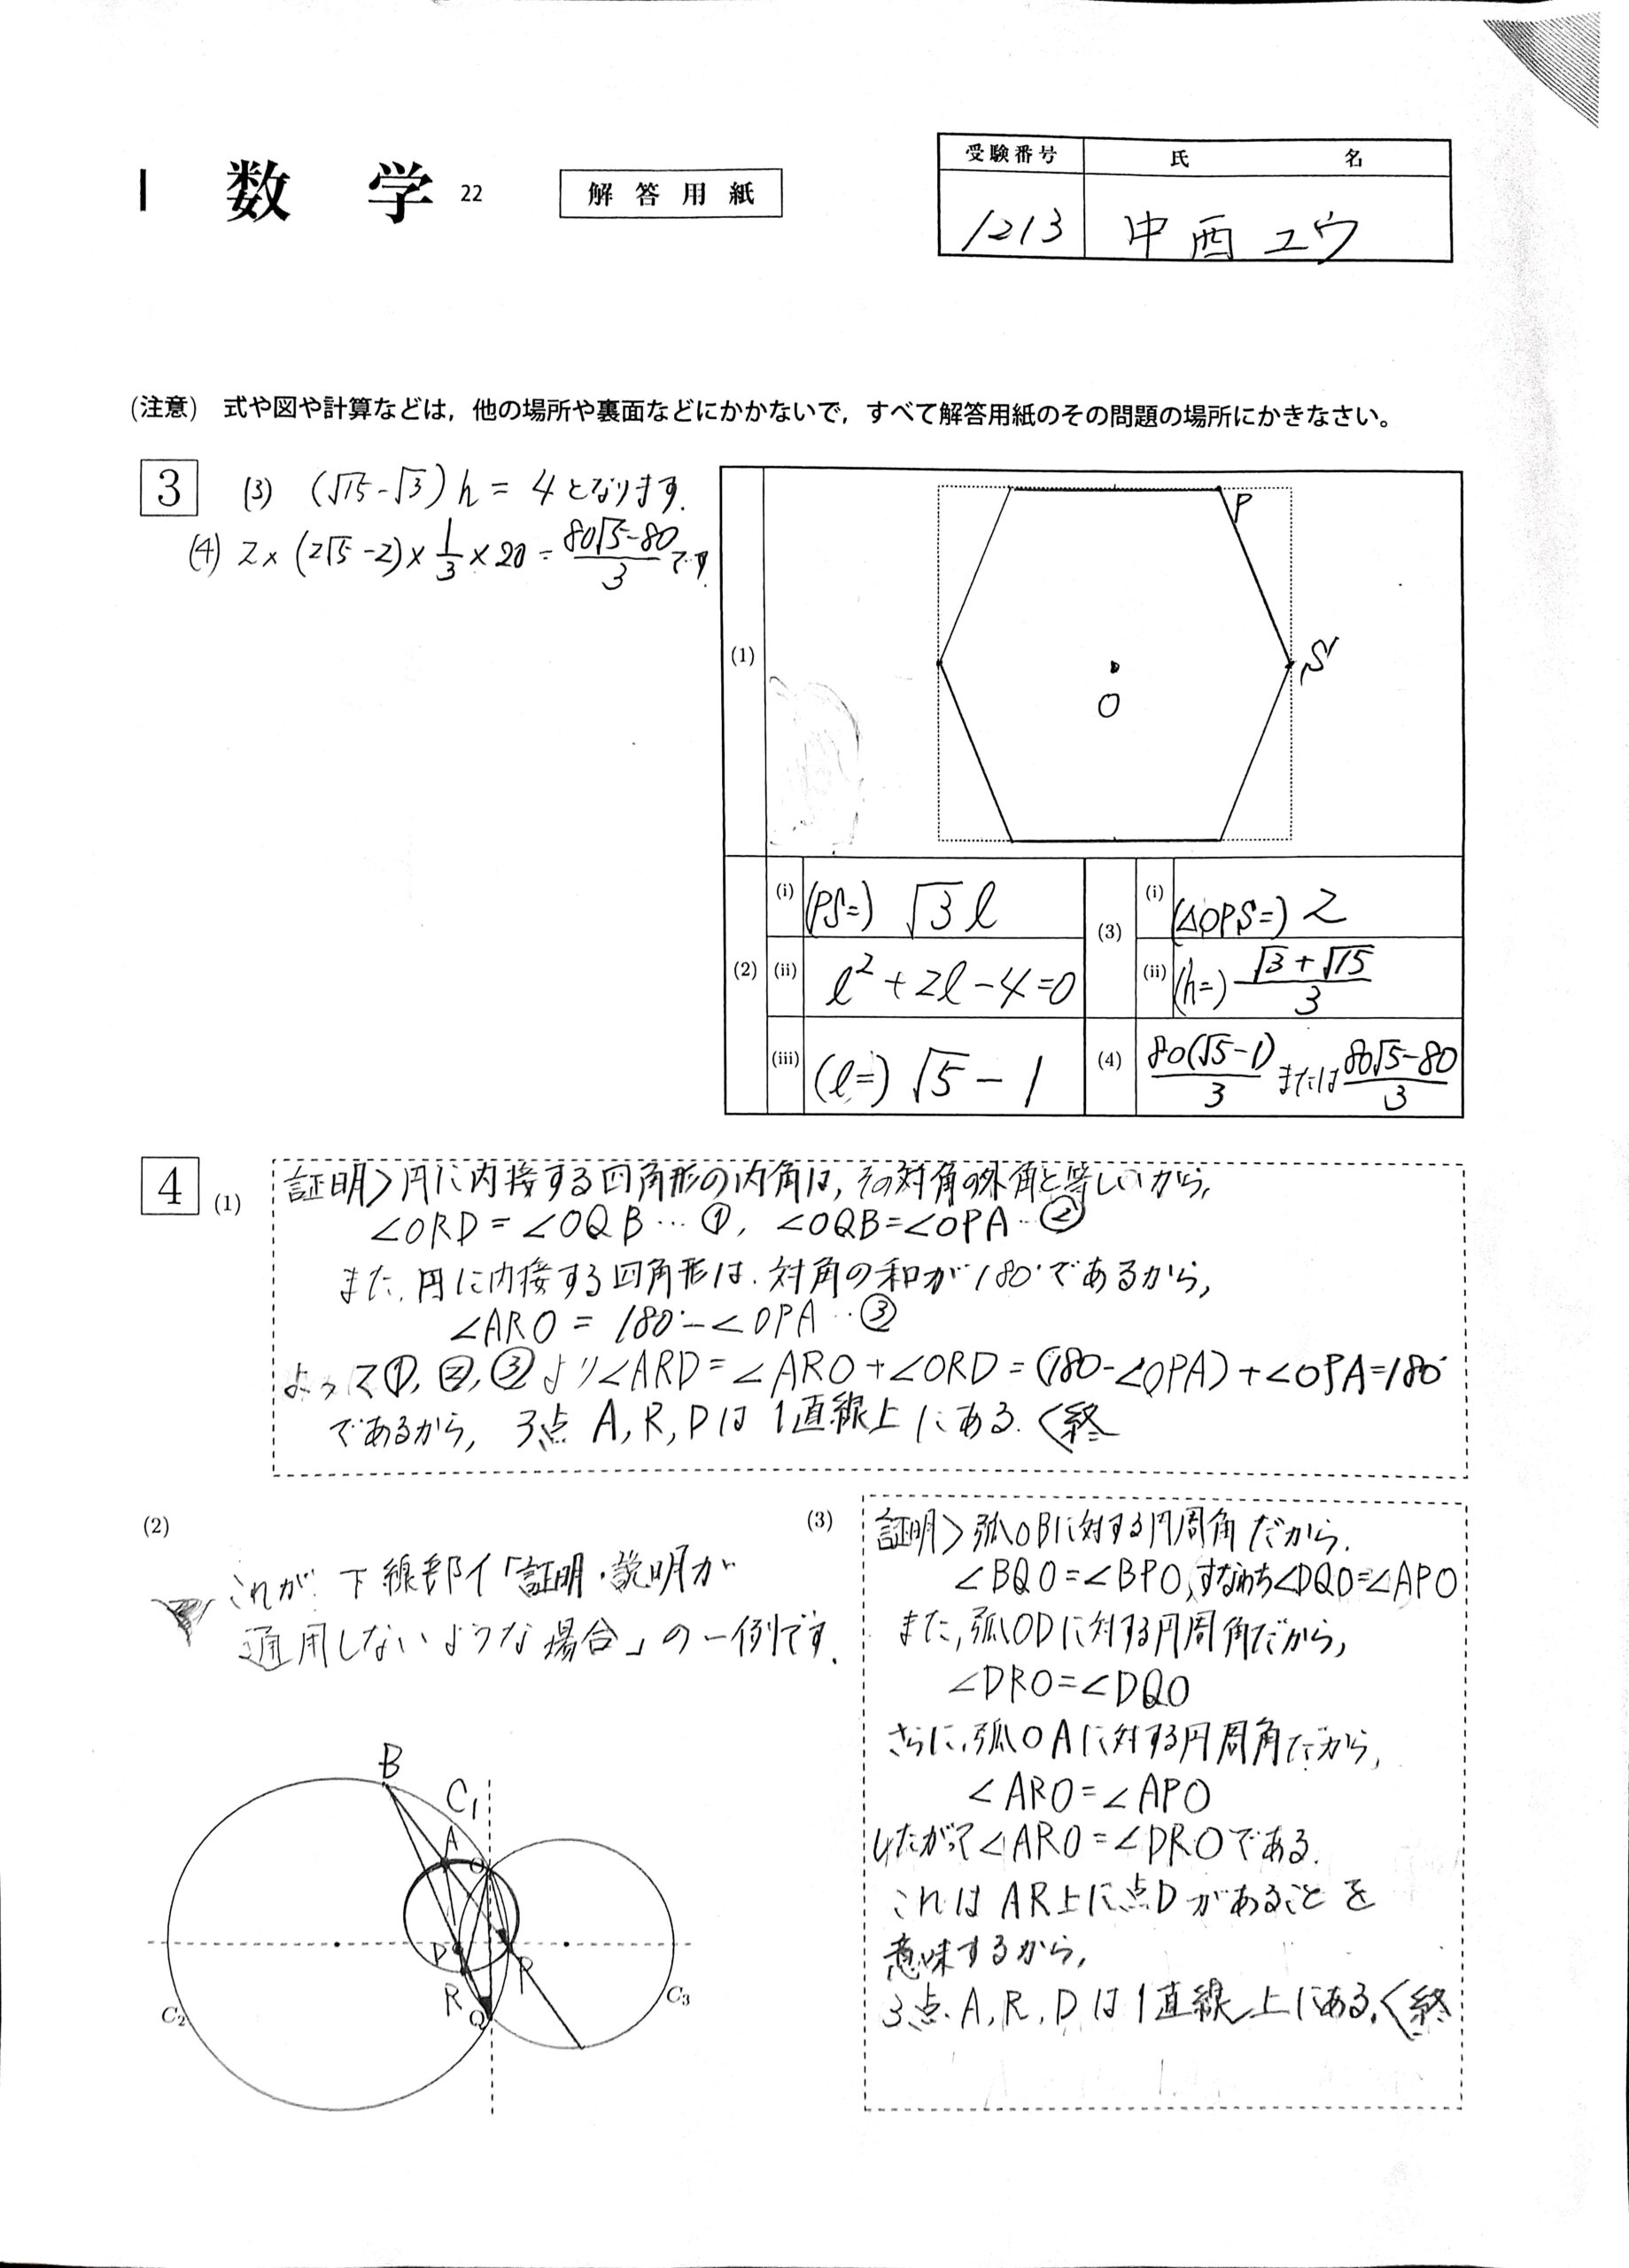 数 学 22
解答用紙
受験番号 氏 名
1213 中西ユウ
(注意) 式や図や計算などは,他の場所や裏面などにかかないで,すべて解答用紙のその問題の場所にかきなさい。
3
(3) (√15-√3)h = 4となります.
(4) 2×(2√5-2)×1/3×20=(80√5-80)/3です.
(1)
P
S
O
(2) (i) (PS=) √3ℓ
(ii) ℓ²+2ℓ-4=0
(iii) (ℓ=) √5-1
(3) (i) (△OPS=) 2
(ii) (h=) (√3+√15)/3
(4) 80(√5-1)/3 または (80√5-80)/3
4 (1)
証明〉円に内接する四角形の内角は,その対角の外角と等しいから,
∠ORD=∠OQB…①, ∠OQB=∠OPA…②
また,円に内接する四角形は,対角の和が180°であるから,
∠ARO = 180°-∠OPA…③
よって①,②,③より∠ARD=∠ARO+∠ORD=(180-∠OPA)+∠OPA=180°
であるから, 3点 A,R,Dは1直線上にある.〈終
(2)
これが,下線部イ「証明・説明が
通用しないような場合」の一例です.
B
C₁
A
O
D
P
R
Q
C₂
C₃
(3)
証明〉弧OBに対する円周角だから,
∠BQO=∠BPO,すなわち∠DQO=∠APO
また,弧ODに対する円周角だから,
∠DRO=∠DQO
さらに,弧OAに対する円周角だから,
∠ARO=∠APO
したがって∠ARO=∠DROである.
これはAR上に点Dがあることを
意味するから,
3点A,R,Dは1直線上にある.〈終